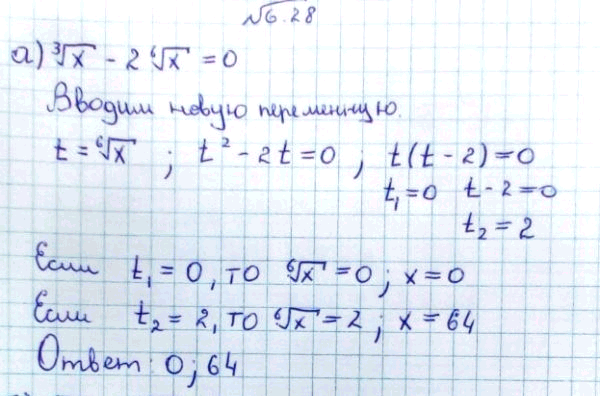 №6.28
а) ∛x - 2 ⁶√x = 0
Вводим новую переменную.
t = ⁶√x ; t² - 2t = 0 ; t(t - 2) = 0
t₁ = 0 t - 2 = 0
t₂ = 2
Если t₁ = 0, то ⁶√x = 0 ; x = 0
Если t₂ = 2, то ⁶√x = 2 ; x = 64
Ответ: 0 ; 64